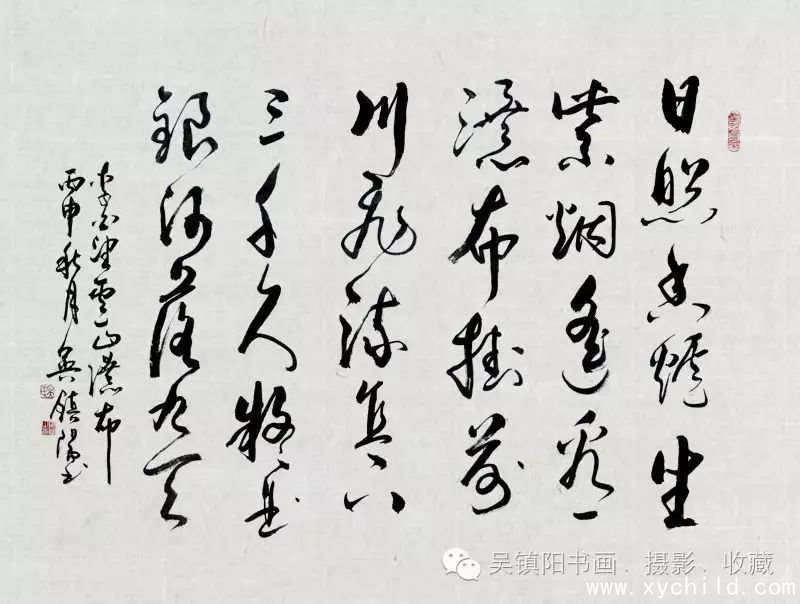 日照香爐生
紫烟遥看
瀑布掛前
川飛流直下
三千尺疑是
銀河落九天
李白望廬山瀑布
丙申秋月吴鎮陽書
吴镇阳书画、摄影、收藏
www.xychild.com